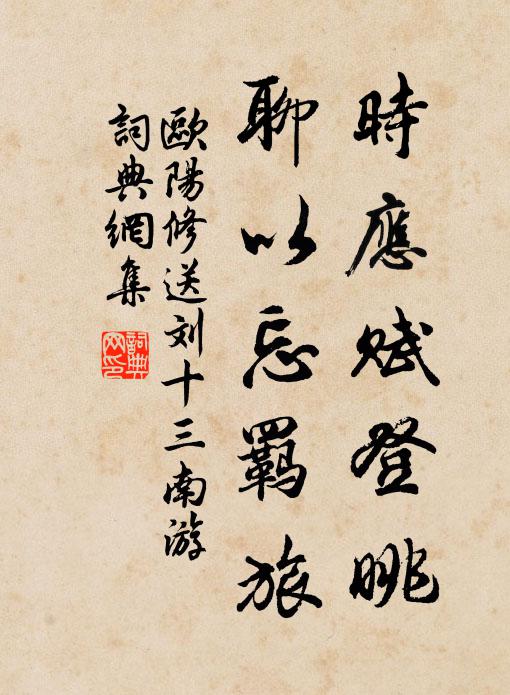 時應賦登眺
聊以忘羇旅
歐陽修送刘十三南游
詞典網集
詞典网印